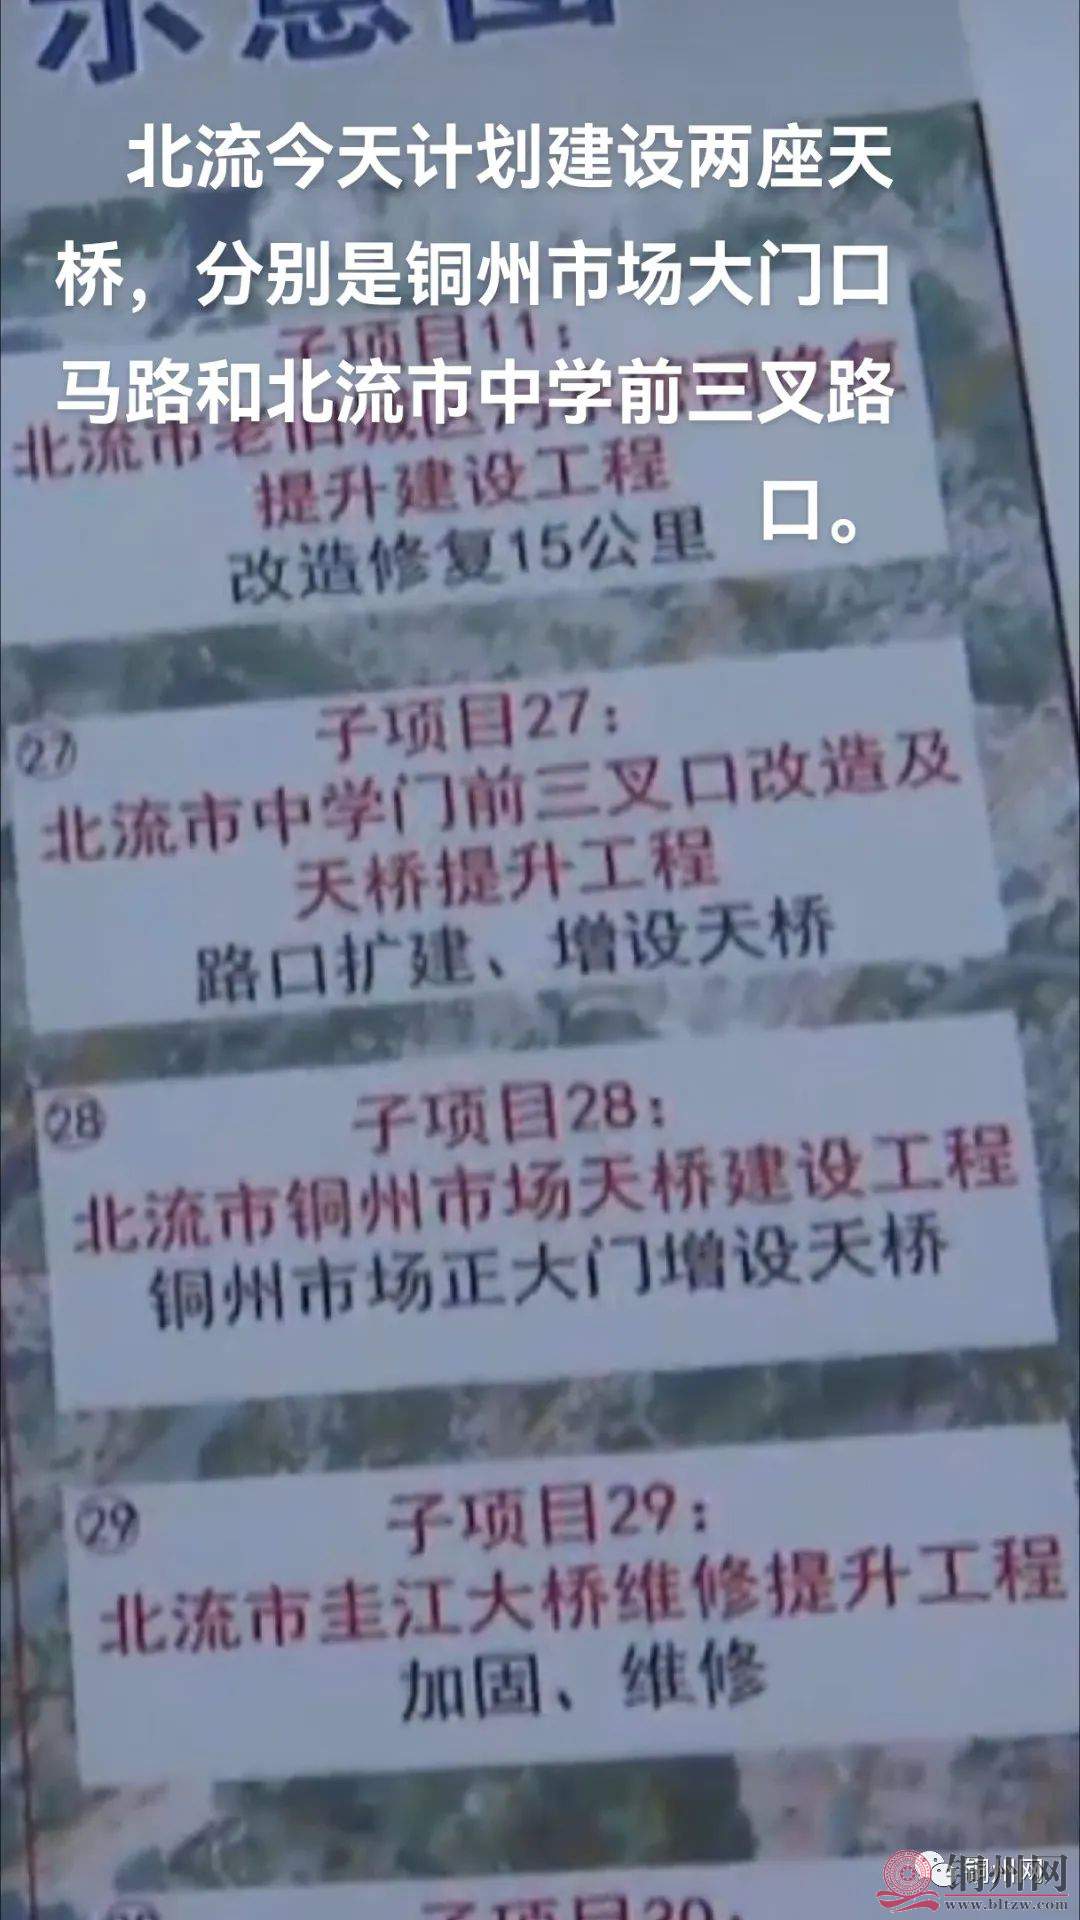 示意图
北流今天计划建设两座天
桥，分别是铜州市场大门口
马路和北流市中学前三叉路
口。
子项目11：
北流市老旧城区
提升建设工程
改造修复15公里
27
子项目27：
北流市中学门前三叉口改造及
天桥提升工程
路口扩建、增设天桥
28
子项目28：
北流市铜州市场天桥建设工程
铜州市场正大门增设天桥
29
子项目29：
北流市圭江大桥维修提升工程
加固、维修
子项目30：
铜州网
铜州网
www.bltzw.com